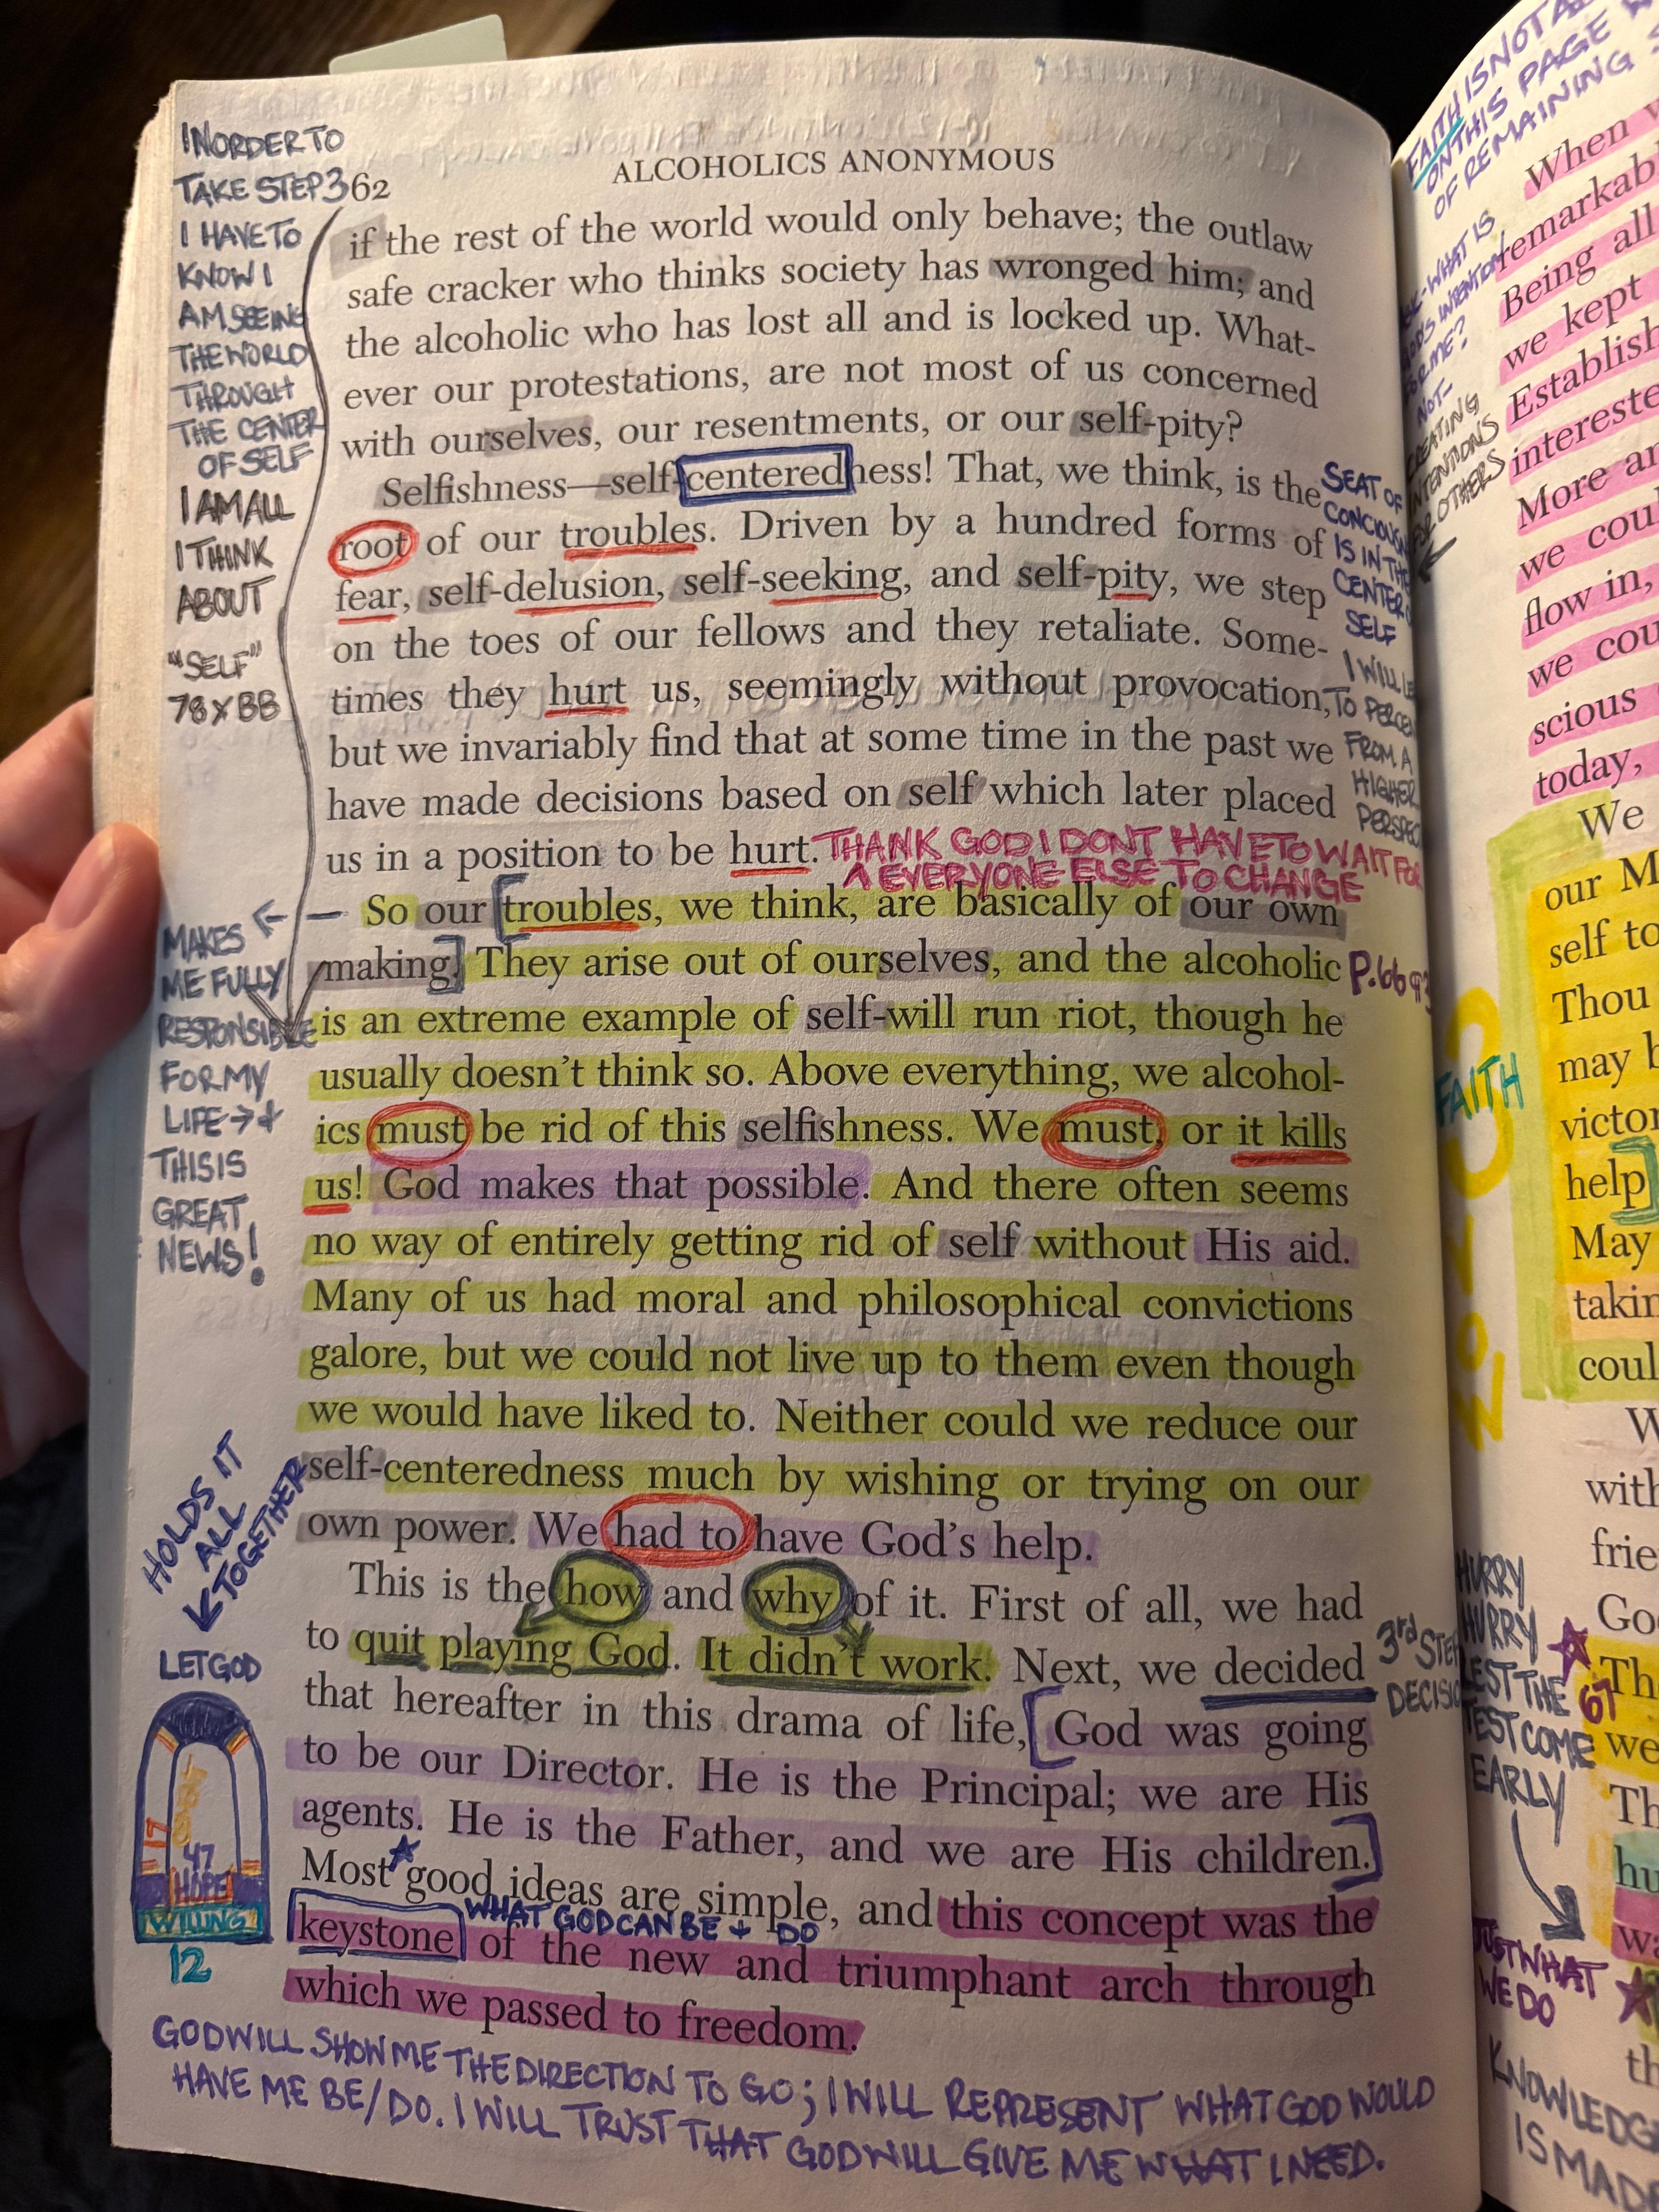 IN ORDER TO
TAKE STEP 3
I HAVE TO
KNOW I
AM SEEING
THE WORLD
THROUGH
THE CENTER
OF SELF
I AM ALL
I THINK
ABOUT
"SELF"
78 X BB
MAKES
ME FULLY
RESPONSIBLE
FOR MY
LIFE →
THIS IS
GREAT
NEWS!
HOLDS IT
ALL
TOGETHER
LET GOD
17
47
HOPE
WILLING
12
62
ALCOHOLICS ANONYMOUS
if the rest of the world would only behave; the outlaw
safe cracker who thinks society has wronged him; and
the alcoholic who has lost all and is locked up. What-
ever our protestations, are not most of us concerned
with ourselves, our resentments, or our self-pity?
Selfishness—self-centeredness! That, we think, is the
root of our troubles. Driven by a hundred forms of
fear, self-delusion, self-seeking, and self-pity, we step
on the toes of our fellows and they retaliate. Some-
times they hurt us, seemingly without provocation,
but we invariably find that at some time in the past we
have made decisions based on self which later placed
us in a position to be hurt.
THANK GOD I DONT HAVE TO WAIT FOR
EVERYONE ELSE TO CHANGE
So our [troubles, we think, are basically of our own
making.] They arise out of ourselves, and the alcoholic
is an extreme example of self-will run riot, though he
usually doesn't think so. Above everything, we alcohol-
ics must be rid of this selfishness. We must, or it kills
us! God makes that possible. And there often seems
no way of entirely getting rid of self without His aid.
Many of us had moral and philosophical convictions
galore, but we could not live up to them even though
we would have liked to. Neither could we reduce our
self-centeredness much by wishing or trying on our
own power. We had to have God's help.
This is the how and why of it. First of all, we had
to quit playing God. It didn't work. Next, we decided
that hereafter in this drama of life, [God was going
to be our Director. He is the Principal; we are His
agents. He is the Father, and we are His children.]
Most good ideas are simple, and this concept was the
WHAT GOD CAN BE + DO
keystone of the new and triumphant arch through
which we passed to freedom.
GOD WILL SHOW ME THE DIRECTION TO GO; I WILL REPRESENT WHAT GOD WOULD
HAVE ME BE/DO. I WILL TRUST THAT GOD WILL GIVE ME WHAT I NEED.
SEAT OF
CONCIOUS
IS IN THE
CENTER
SELF
I WILL
TO
FROM A
HIGHER
P.66 ¶3
3rd STEP
FAITH IS NOT A
ON THIS PAGE
OF REMAINING
WHAT IS
NOT-
CREATING
INTENTIONS
OTHERS
FAITH
HURRY
HURRY
LEST THE
TEST COME
EARLY
67
JUST WHAT
WE DO
KNOWLEDGE
IS MADE
When
remarkab
Being all
we kept
Establish
intereste
More an
we coul
flow in,
we cou
scious
today,
We
our M
self to
Thou
may b
victor
help]
May
takin
coul
W
with
frie
Go
Th
we
Th
hu
wa
th